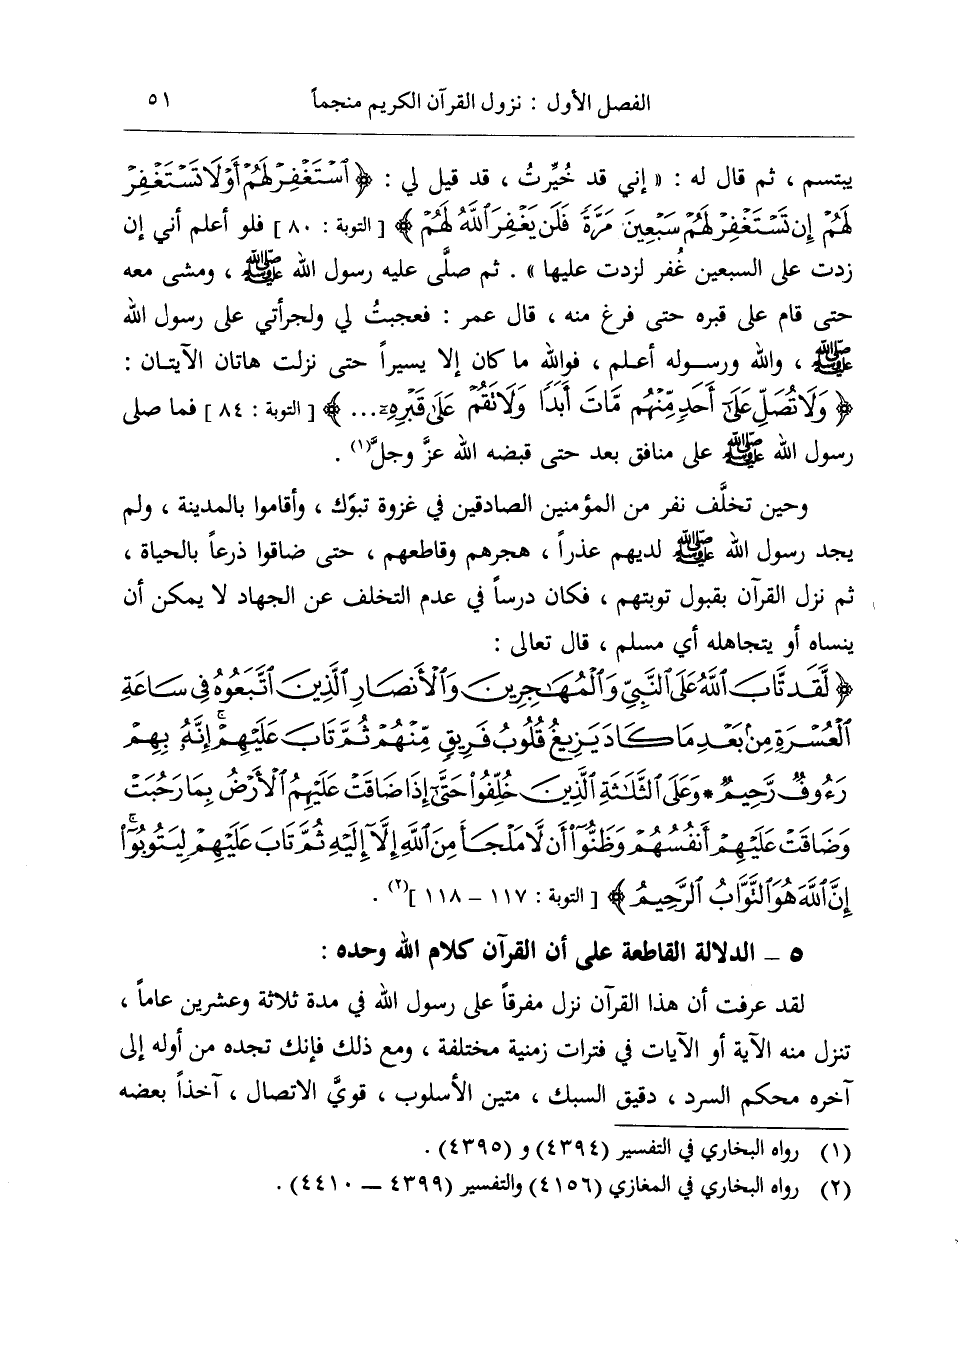 الفصل الأول : نزول القرآن الكريم منجماً ٥١
يبتسم ، ثم قال له : « إني قد خُيِّرتُ ، قد قيل لي : ﴿ ٱسْتَغْفِرْ لَهُمْ أَوْ لَا تَسْتَغْفِرْ
لَهُمْ إِن تَسْتَغْفِرْ لَهُمْ سَبْعِينَ مَرَّةً فَلَن يَغْفِرَ ٱللَّهُ لَهُمْ ﴾ [ التوبة : ٨٠ ] فلو أعلم أني إن
زدت على السبعين غُفر لزدت عليها » . ثم صلَّى عليه رسول الله ﷺ ، ومشى معه
حتى قام على قبره حتى فرغ منه ، قال عمر : فعجبتُ لي ولجرأتي على رسول الله
ﷺ ، والله ورسوله أعلم ، فوالله ما كان إلا يسيراً حتى نزلت هاتان الآيتان :
﴿ وَلَا تُصَلِّ عَلَىٰٓ أَحَدٍ مِّنْهُم مَّاتَ أَبَدًا وَلَا تَقُمْ عَلَىٰ قَبْرِهِۦٓ ... ﴾ [ التوبة : ٨٤ ] فما صلى
رسول الله ﷺ على منافق بعد حتى قبضه الله عزَّ وجلَّ(١) .
وحين تخلَّف نفر من المؤمنين الصادقين في غزوة تبوك ، وأقاموا بالمدينة ، ولم
يجد رسول الله ﷺ لديهم عذراً ، هجرهم وقاطعهم ، حتى ضاقوا ذرعاً بالحياة ،
ثم نزل القرآن بقبول توبتهم ، فكان درساً في عدم التخلف عن الجهاد لا يمكن أن
ينساه أو يتجاهله أي مسلم ، قال تعالى :
﴿ لَّقَد تَّابَ ٱللَّهُ عَلَى ٱلنَّبِىِّ وَٱلْمُهَٰجِرِينَ وَٱلْأَنصَارِ ٱلَّذِينَ ٱتَّبَعُوهُ فِى سَاعَةِ
ٱلْعُسْرَةِ مِنۢ بَعْدِ مَا كَادَ يَزِيغُ قُلُوبُ فَرِيقٍ مِّنْهُمْ ثُمَّ تَابَ عَلَيْهِمْ ۚ إِنَّهُۥ بِهِمْ
رَءُوفٌ رَّحِيمٌ * وَعَلَى ٱلثَّلَٰثَةِ ٱلَّذِينَ خُلِّفُوا۟ حَتَّىٰٓ إِذَا ضَاقَتْ عَلَيْهِمُ ٱلْأَرْضُ بِمَا رَحُبَتْ
وَضَاقَتْ عَلَيْهِمْ أَنفُسُهُمْ وَظَنُّوٓا۟ أَن لَّا مَلْجَأَ مِنَ ٱللَّهِ إِلَّآ إِلَيْهِ ثُمَّ تَابَ عَلَيْهِمْ لِيَتُوبُوٓا۟ ۚ
إِنَّ ٱللَّهَ هُوَ ٱلتَّوَّابُ ٱلرَّحِيمُ ﴾ [ التوبة : ١١٧ – ١١٨ ](٢) .
٥ – الدلالة القاطعة على أن القرآن كلام الله وحده :
لقد عرفت أن هذا القرآن نزل مفرقاً على رسول الله في مدة ثلاثة وعشرين عاماً ،
تنزل منه الآية أو الآيات في فترات زمنية مختلفة ، ومع ذلك فإنك تجده من أوله إلى
آخره محكم السرد ، دقيق السبك ، متين الأسلوب ، قويَّ الاتصال ، آخذاً بعضه
(١) رواه البخاري في التفسير (٤٣٩٤) و (٤٣٩٥) .
(٢) رواه البخاري في المغازي (٤١٥٦) والتفسير (٤٣٩٩ – ٤٤١٠) .